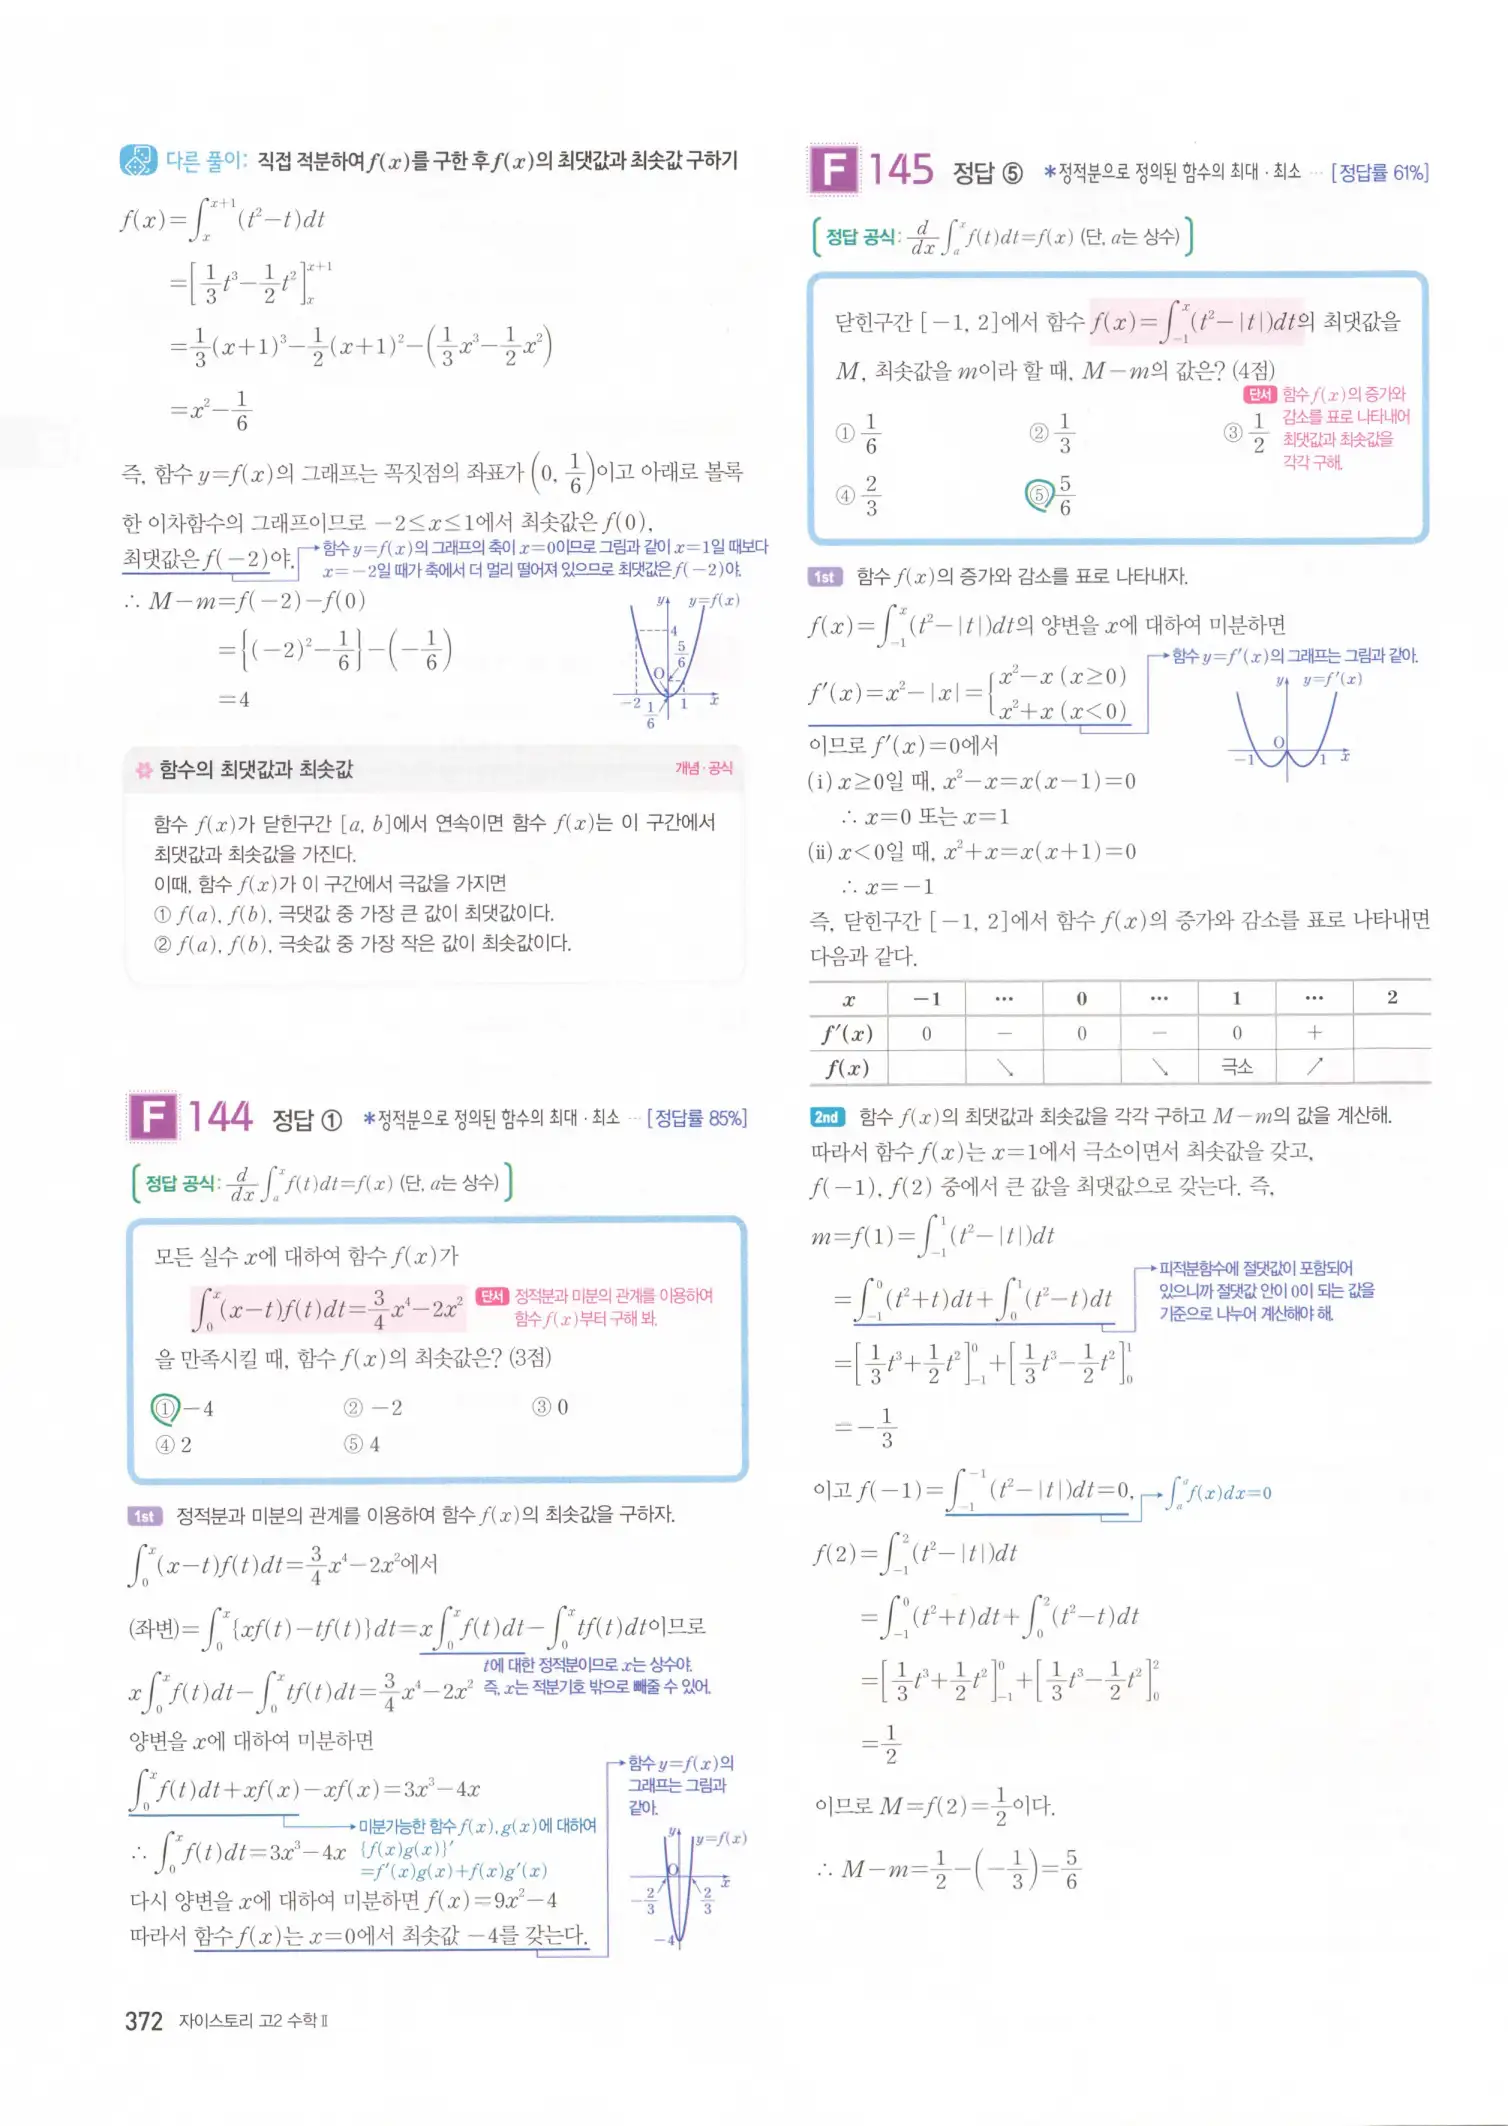 다른 풀이: 직접 적분하여 f(x)를 구한 후 f(x)의 최댓값과 최솟값 구하기
f(x)=∫_x^{x+1}(t²−t)dt
=[1/3 t³−1/2 t²]_x^{x+1}
=1/3(x+1)³−1/2(x+1)²−(1/3 x³−1/2 x²)
=x²−1/6
즉, 함수 y=f(x)의 그래프는 꼭짓점의 좌표가 (0, 1/6)이고 아래로 볼록
한 이차함수의 그래프이므로 −2≤x≤1에서 최솟값은 f(0),
최댓값은 f(−2)야.
함수 y=f(x)의 그래프의 축이 x=0이므로 그림과 같이 x=1일 때보다
x=−2일 때가 축에서 더 멀리 떨어져 있으므로 최댓값은 f(−2)야.
∴ M−m=f(−2)−f(0)
={(−2)²−1/6}−(−1/6)
=4
y y=f(x)
4
5/6
O
−2 1/6 1 x
함수의 최댓값과 최솟값 개념·공식
함수 f(x)가 닫힌구간 [a, b]에서 연속이면 함수 f(x)는 이 구간에서
최댓값과 최솟값을 가진다.
이때, 함수 f(x)가 이 구간에서 극값을 가지면
① f(a), f(b), 극댓값 중 가장 큰 값이 최댓값이다.
② f(a), f(b), 극솟값 중 가장 작은 값이 최솟값이다.
F 144 정답 ① *정적분으로 정의된 함수의 최대·최소 ··· [정답률 85%]
정답 공식: d/dx ∫_a^x f(t)dt=f(x) (단, a는 상수)
모든 실수 x에 대하여 함수 f(x)가
∫_0^x (x−t)f(t)dt=3/4 x⁴−2x²
단서 정적분과 미분의 관계를 이용하여
함수 f(x)부터 구해 봐.
을 만족시킬 때, 함수 f(x)의 최솟값은? (3점)
① −4 ② −2 ③ 0
④ 2 ⑤ 4
1st 정적분과 미분의 관계를 이용하여 함수 f(x)의 최솟값을 구하자.
∫_0^x (x−t)f(t)dt=3/4 x⁴−2x²에서
(좌변)=∫_0^x {xf(t)−tf(t)}dt=x∫_0^x f(t)dt−∫_0^x tf(t)dt이므로
t에 대한 정적분이므로 x는 상수야.
즉, x는 적분기호 밖으로 빼줄 수 있어.
x∫_0^x f(t)dt−∫_0^x tf(t)dt=3/4 x⁴−2x²
양변을 x에 대하여 미분하면
∫_0^x f(t)dt+xf(x)−xf(x)=3x³−4x
미분가능한 함수 f(x), g(x)에 대하여
{f(x)g(x)}′
=f′(x)g(x)+f(x)g′(x)
∴ ∫_0^x f(t)dt=3x³−4x
다시 양변을 x에 대하여 미분하면 f(x)=9x²−4
따라서 함수 f(x)는 x=0에서 최솟값 −4를 갖는다.
함수 y=f(x)의
그래프는 그림과
같아.
y y=f(x)
O x
−2/3 2/3
−4
372 자이스토리 고2 수학 Ⅱ
F 145 정답 ⑤ *정적분으로 정의된 함수의 최대·최소 ··· [정답률 61%]
정답 공식: d/dx ∫_a^x f(t)dt=f(x) (단, a는 상수)
닫힌구간 [−1, 2]에서 함수 f(x)=∫_{−1}^x (t²−|t|)dt의 최댓값을
M, 최솟값을 m이라 할 때, M−m의 값은? (4점)
단서 함수 f(x)의 증가와
감소를 표로 나타내어
최댓값과 최솟값을
각각 구해.
① 1/6 ② 1/3 ③ 1/2
④ 2/3 ⑤ 5/6
1st 함수 f(x)의 증가와 감소를 표로 나타내자.
f(x)=∫_{−1}^x (t²−|t|)dt의 양변을 x에 대하여 미분하면
f′(x)=x²−|x|={x²−x (x≥0)
x²+x (x<0)
함수 y=f′(x)의 그래프는 그림과 같아.
y y=f′(x)
O
−1 1 x
이므로 f′(x)=0에서
(i) x≥0일 때, x²−x=x(x−1)=0
∴ x=0 또는 x=1
(ii) x<0일 때, x²+x=x(x+1)=0
∴ x=−1
즉, 닫힌구간 [−1, 2]에서 함수 f(x)의 증가와 감소를 표로 나타내면
다음과 같다.
x −1 ··· 0 ··· 1 ··· 2
f′(x) 0 − 0 − 0 +
f(x) ↘ ↘ 극소 ↗
2nd 함수 f(x)의 최댓값과 최솟값을 각각 구하고 M−m의 값을 계산해.
따라서 함수 f(x)는 x=1에서 극소이면서 최솟값을 갖고,
f(−1), f(2) 중에서 큰 값을 최댓값으로 갖는다. 즉,
m=f(1)=∫_{−1}^1 (t²−|t|)dt
=∫_{−1}^0 (t²+t)dt+∫_0^1 (t²−t)dt
피적분함수에 절댓값이 포함되어
있으니까 절댓값 안이 0이 되는 값을
기준으로 나누어 계산해야 해.
=[1/3 t³+1/2 t²]_{−1}^0+[1/3 t³−1/2 t²]_0^1
=−1/3
이고 f(−1)=∫_{−1}^{−1} (t²−|t|)dt=0, ∫_a^a f(x)dx=0
f(2)=∫_{−1}^2 (t²−|t|)dt
=∫_{−1}^0 (t²+t)dt+∫_0^2 (t²−t)dt
=[1/3 t³+1/2 t²]_{−1}^0+[1/3 t³−1/2 t²]_0^2
=1/2
이므로 M=f(2)=1/2이다.
∴ M−m=1/2−(−1/3)=5/6